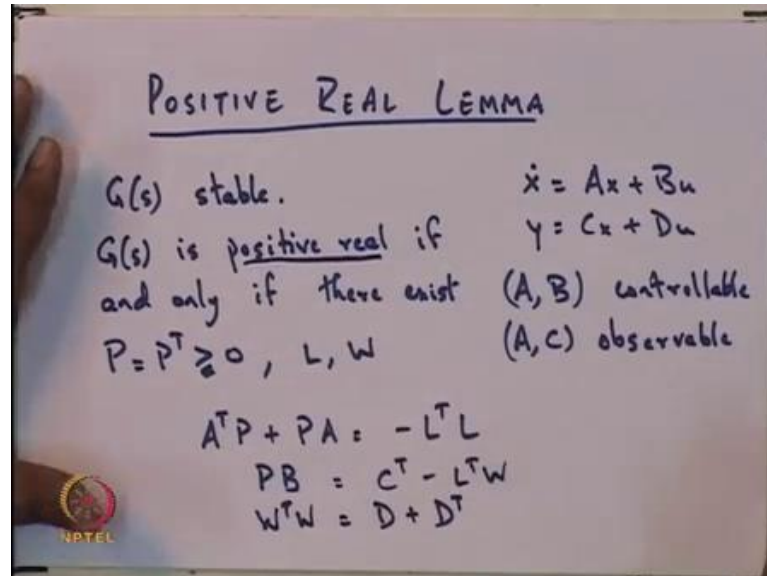 POSITIVE REAL LEMMA
G(s) stable.
G(s) is positive real if
and only if there exist
P = Pᵀ ≥ 0, L, W
ẋ = Ax + Bu
y = Cx + Du
(A, B) controllable
(A, C) observable
AᵀP + PA = -LᵀL
PB = Cᵀ - LᵀW
WᵀW = D + Dᵀ
NPTEL